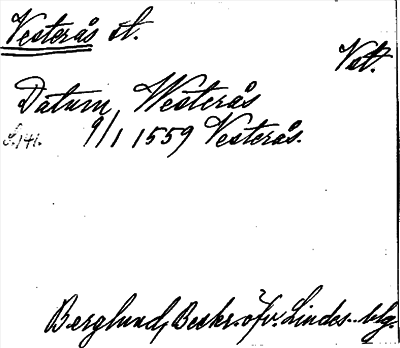 Vesterås st.
Vstl.
Datum Westerås
S. 141. 9/1 1559 Vesterås.
Berglund, Beskr. öfv. Lindes. blg.